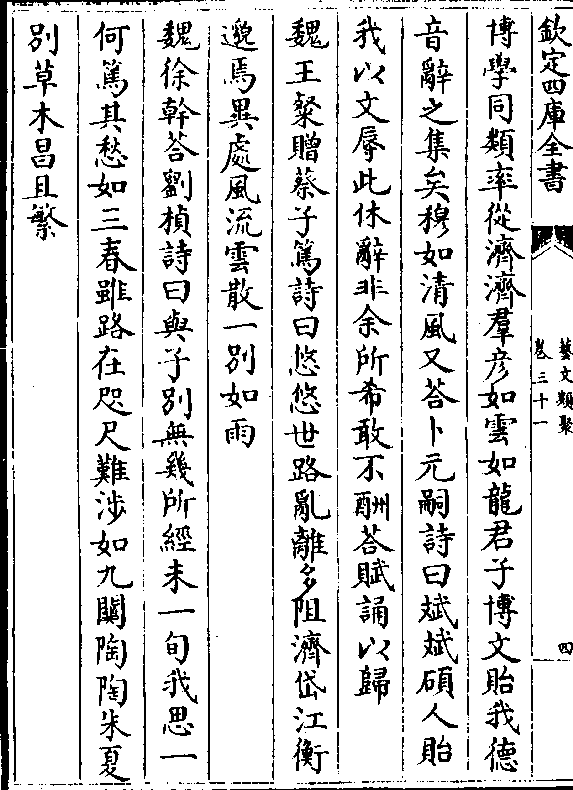 欽定四庫全書
藝文類聚
卷三十一
四
博學同類率從濟濟羣彦如雲如龍君子博文貽我德
音辭之集矣穆如清風又荅卜元嗣詩曰斌斌碩人貽
我以文辱此休辭非余所希敢不酬荅賦誦以歸
魏王粲贈蔡子篤詩曰悠悠世路亂離多阻濟岱江衡
邈焉異處風流雲散一別如雨
魏徐幹荅劉楨詩曰與子別無幾所經未一旬我思一
何篤其愁如三春雖路在咫尺難涉如九關陶陶朱夏
別草木昌且繁